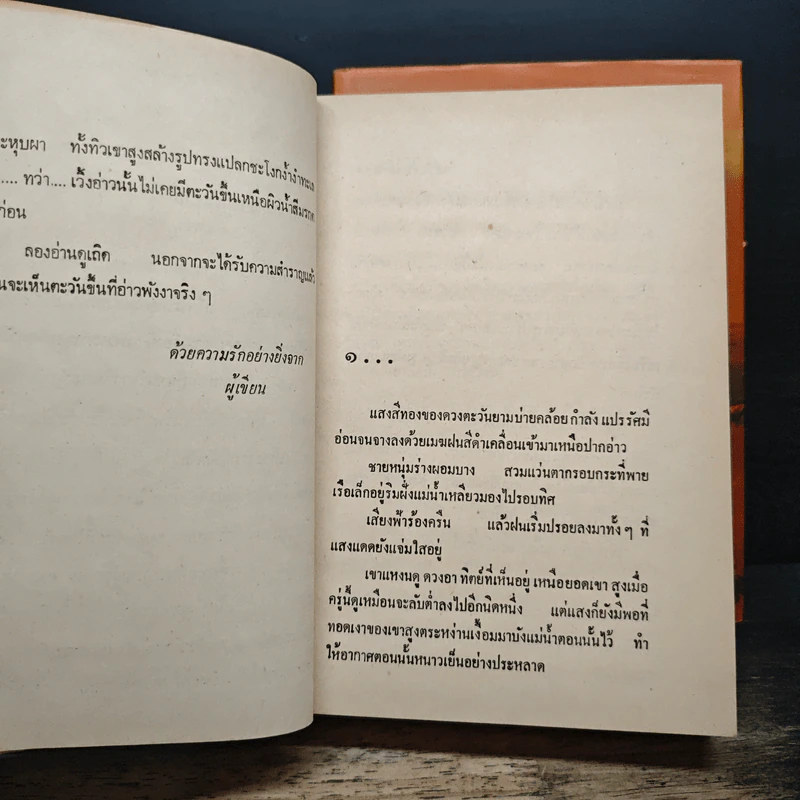 ะหุบผา ทั้งทิวเขาสูงสล้างรูปทรงแปลกชะโงกง้ำงำทะเล
.... ทว่า.... เวิ้งอ่าวนั้นไม่เคยมีตะวันขึ้นเหนือผิวน้ำสีมรกต
ก่อน
ลองอ่านดูเถิด นอกจากจะได้รับความสำราญแล้ว
นจะเห็นตะวันขึ้นที่อ่าวพังงาจริง ๆ
ด้วยความรักอย่างยิ่งจาก
ผู้เขียน
๑...
แสงสีทองของดวงตะวันยามบ่ายคล้อย กำลัง แปรรัศมี
อ่อนจนจางลงด้วยเมฆฝนสีดำเคลื่อนเข้ามาเหนือปากอ่าว
ชายหนุ่มร่างผอมบาง สวมแว่นตากรอบกระที่พาย
เรือเล็กอยู่ริมฝั่งแม่น้ำเหลียวมองไปรอบทิศ
เสียงฟ้าร้องครืน แล้วฝนเริ่มปรอยลงมาทั้ง ๆ ที่
แสงแดดยังแจ่มใสอยู่
เขาแหงนดู ดวงอา ทิตย์ที่เห็นอยู่ เหนือยอดเขา สูงเมื่อ
ครู่นี้ดูเหมือนจะลับต่ำลงไปอีกนิดหนึ่ง แต่แสงก็ยังมีพอที่
ทอดเงาของเขาสูงตระหง่านเงื้อมมาบังแม่น้ำตอนนั้นไว้ ทำ
ให้อากาศตอนนั้นหนาวเย็นอย่างประหลาด